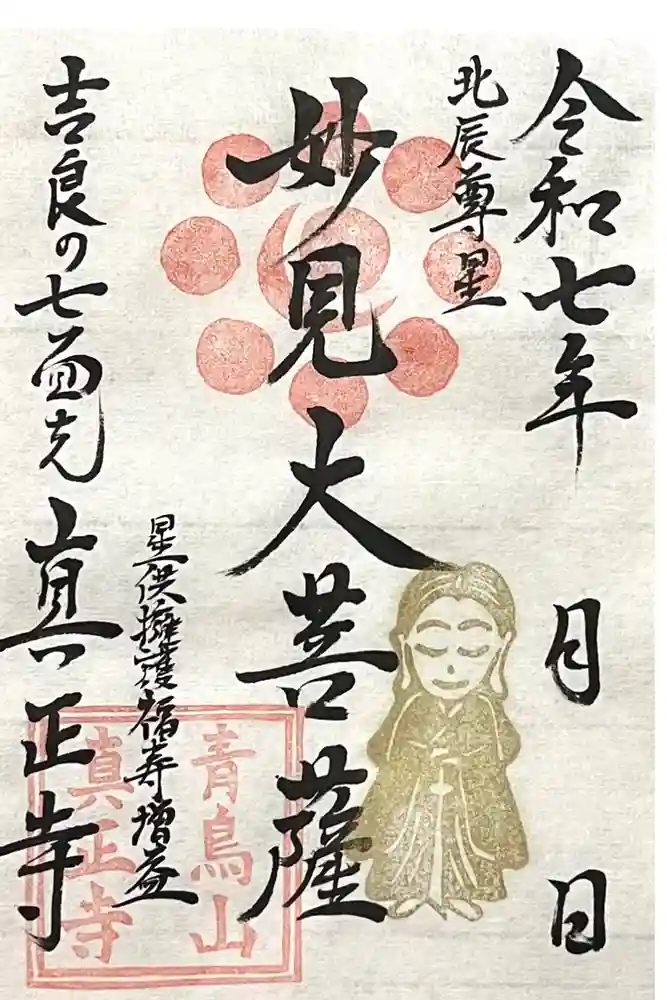 令和七年 月 日
北辰尊星
妙見大菩薩
星供擁護福寿増益
吉良の七面さん 真正寺
青鳥山
真正寺